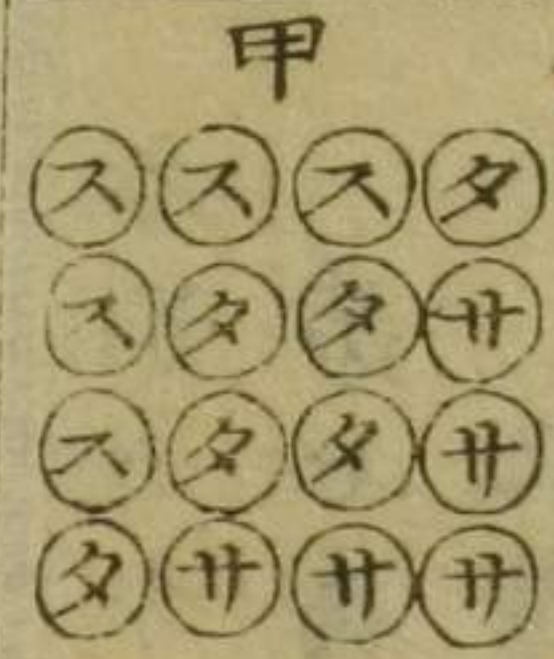 甲
ス ス ス タ
ス タ タ サ
ス タ タ サ
タ サ サ サ